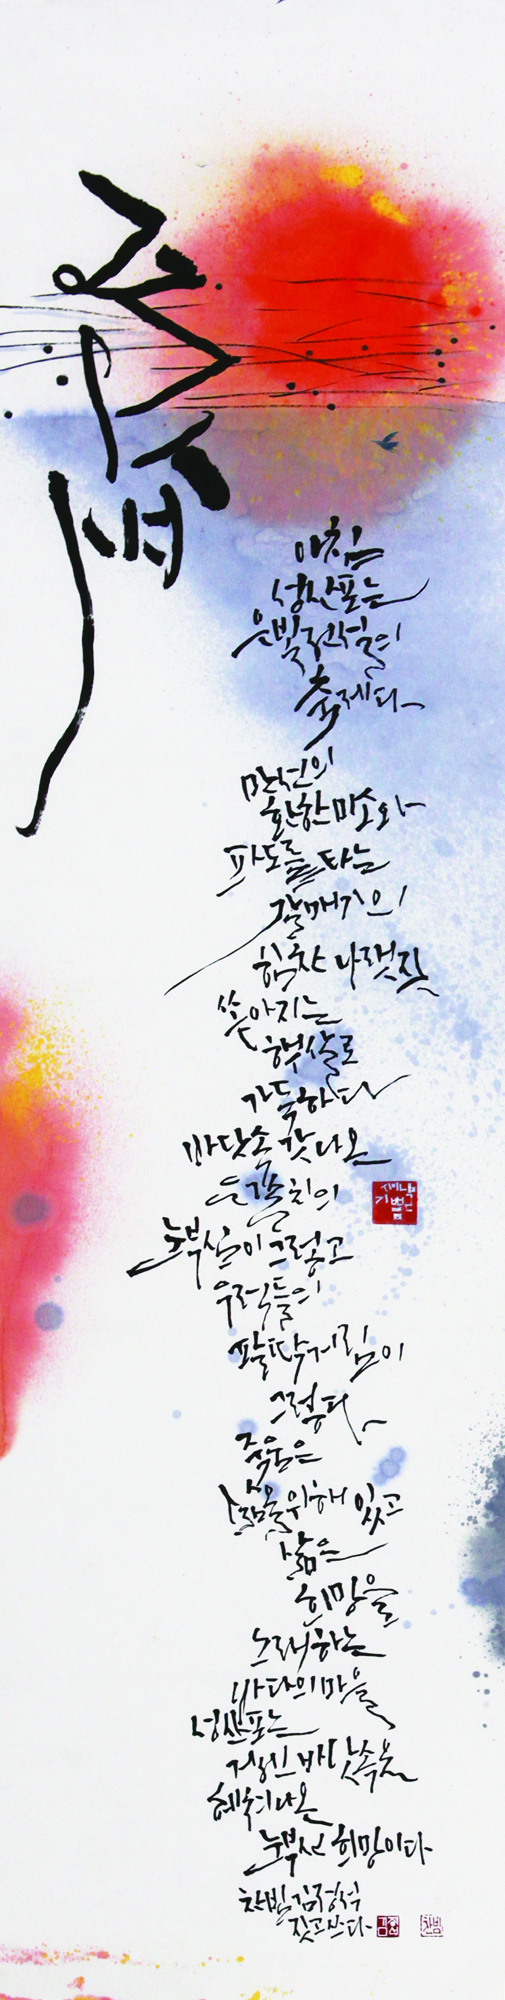 아침
성산포는
은빛 전설의
축제다
만선의
환한 미소와
파도를 타는
갈매기의
힘찬 나랫짓
쏟아지는
햇살로
가득하다
바닷속 갓 나온
은갈치의
눈부심이 그렇고
우럭들의
팔딱거림이
그렇다
죽음은
삶을 위해 있고
삶은
희망을
노래하는
바다의 마을
성산포는
거센 바닷속을
헤쳐 나온
눈부신 희망이다
찬빛 김정석
짓고 쓰다